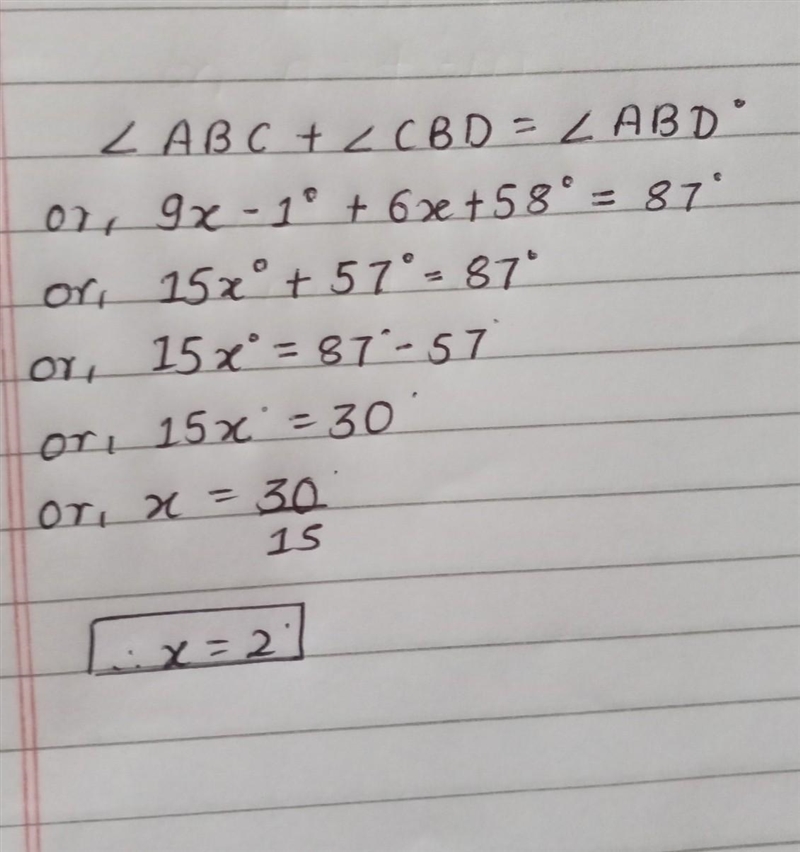 ∠ABC + ∠CBD = ∠ABD°
or, 9x - 1° + 6x + 58° = 87°
or, 15x° + 57° = 87°
or, 15x° = 87° - 57°
or, 15x° = 30°
or, x = 30°/15
∴ x = 2°